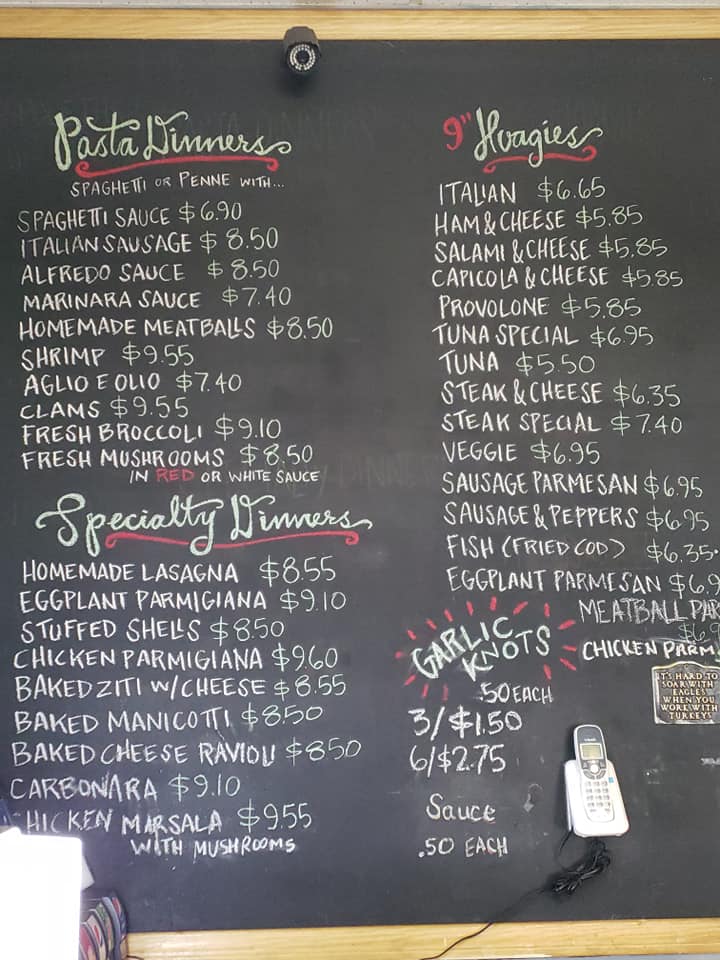 Pasta Dinners
SPAGHETTI OR PENNE WITH...
SPAGHETTI SAUCE $6.90
ITALIAN SAUSAGE $8.50
ALFREDO SAUCE $8.50
MARINARA SAUCE $7.40
HOMEMADE MEATBALLS $8.50
SHRIMP $9.55
AGLIO E OLIO $7.40
CLAMS $9.55
FRESH BROCCOLI $9.10
FRESH MUSHROOMS $8.50
IN RED OR WHITE SAUCE
Specialty Dinners
HOMEMADE LASAGNA $8.55
EGGPLANT PARMIGIANA $9.10
STUFFED SHELLS $8.50
CHICKEN PARMIGIANA $9.60
BAKED ZITI W/CHEESE $8.55
BAKED MANICOTTI $8.50
BAKED CHEESE RAVIOLI $8.50
CARBONARA $9.10
CHICKEN MARSALA $9.55
WITH MUSHROOMS
9" Hoagies
ITALIAN $6.65
HAM & CHEESE $5.85
SALAMI & CHEESE $5.85
CAPICOLA & CHEESE $5.85
PROVOLONE $5.85
TUNA SPECIAL $6.95
TUNA $5.50
STEAK & CHEESE $6.35
STEAK SPECIAL $7.40
VEGGIE $6.95
SAUSAGE PARMESAN $6.95
SAUSAGE & PEPPERS $6.95
FISH (FRIED COD) $6.35
EGGPLANT PARMESAN $6.9
MEATBALL PAR
$6.9
CHICKEN PARM
GARLIC
KNOTS
.50 EACH
3/$1.50
6/$2.75
Sauce
.50 EACH
IT'S HARD TO
SOAR WITH
EAGLES
WHEN YOU
WORK WITH
TURKEYS